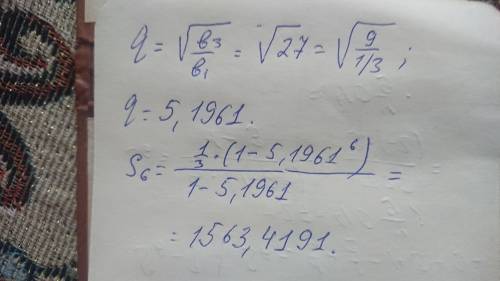 q = √(в₃/в₁) = √27 = √(9/(1/3)) ;
q = 5,1961.
S₆ = (1/3 · (1 - 5,1961⁶))/(1 - 5,1961) =
= 1563,4191.